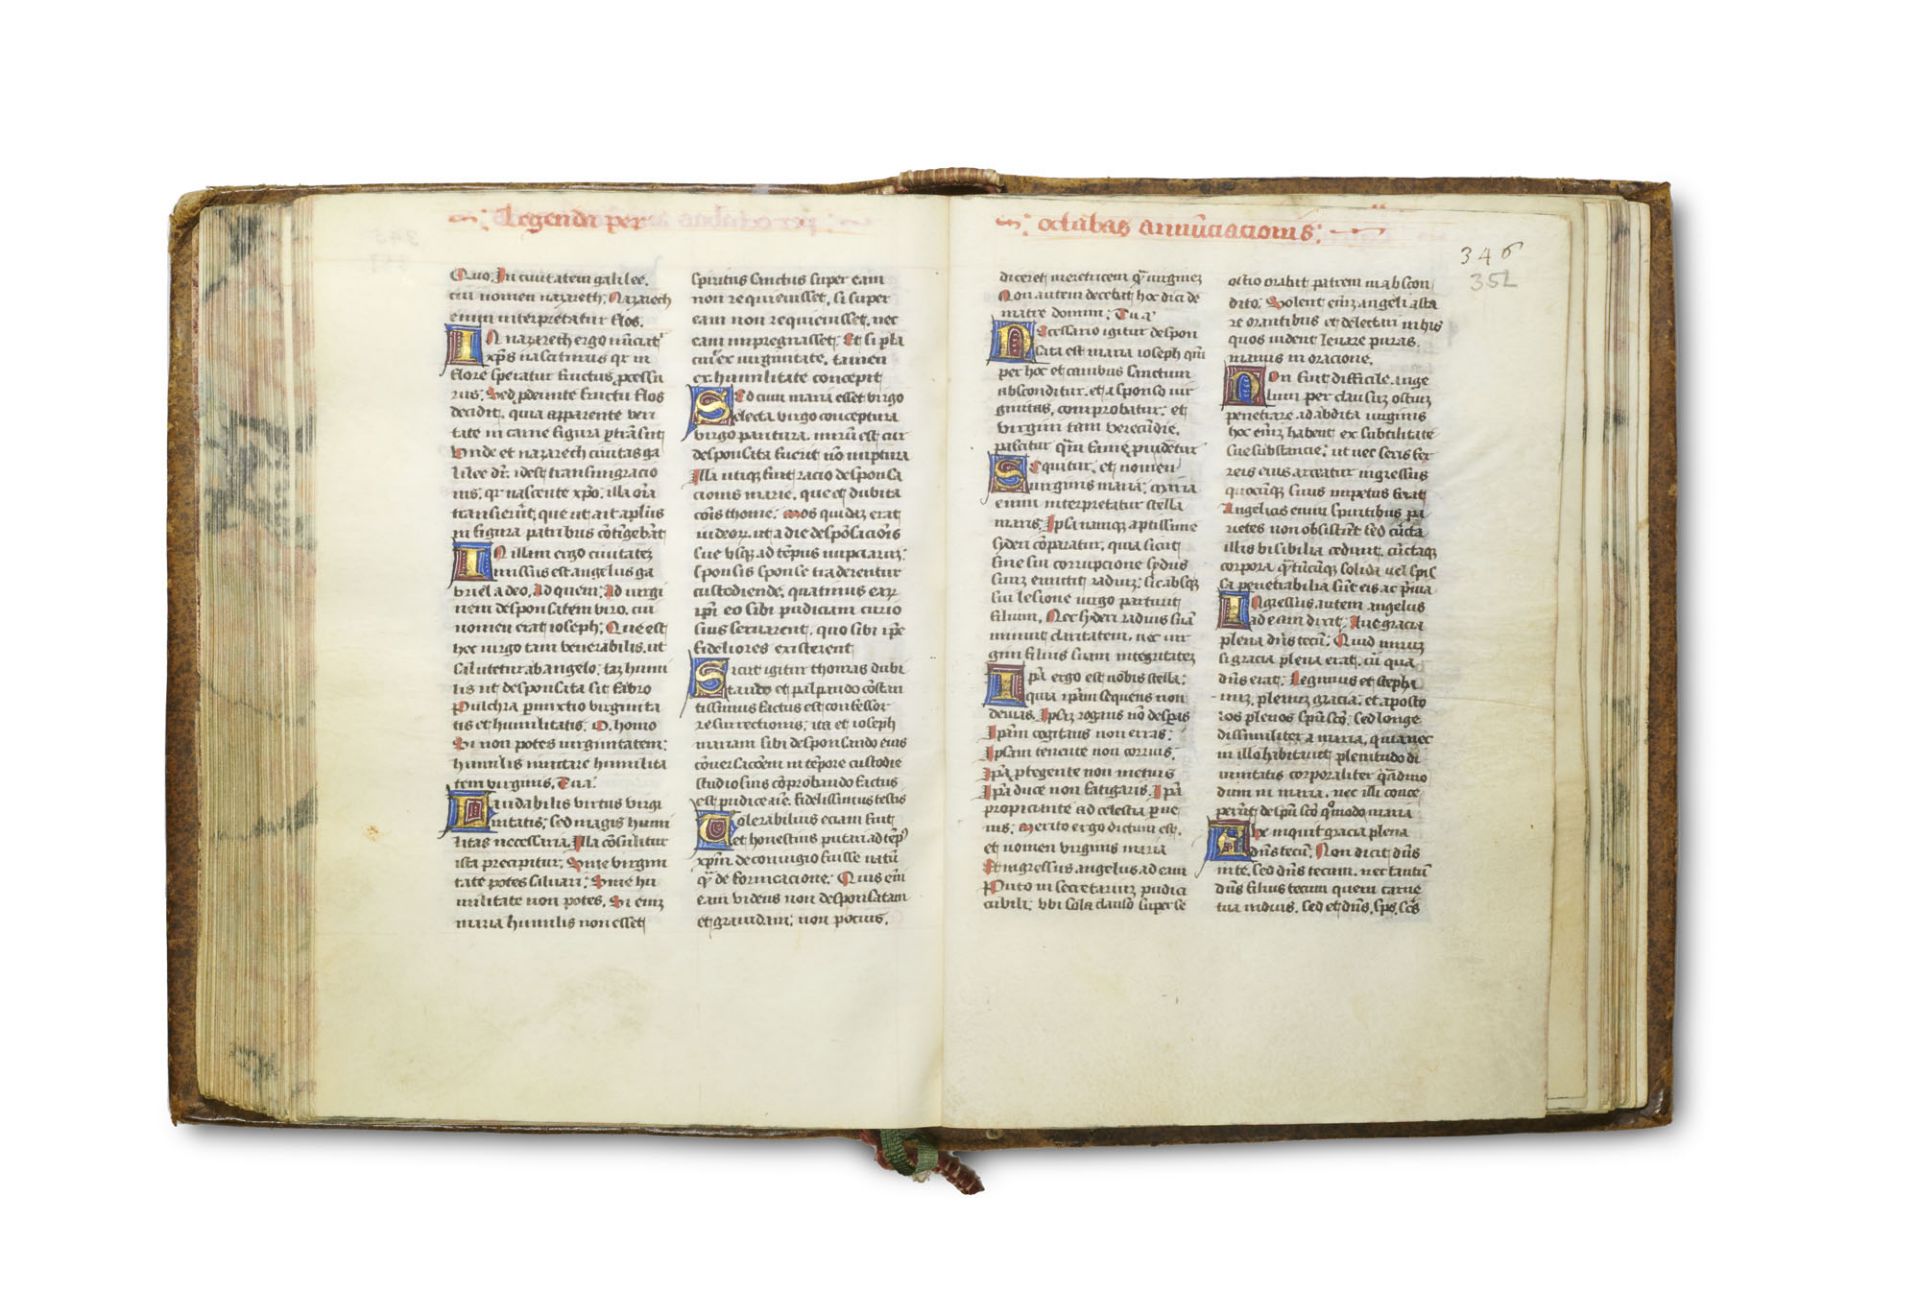 Legenda per
Quo. In ciuitatem galilee.
cui nomen nazareth. Nazareth
enim interpretatur flos.
IN nazareth ergo nūciat᷑
xp̄s nasciturus qr in
flore speratur fructus ꝓcessu
rus. Sed ꝓdeunte fructu flos
decidit, quia apparente veri
tate in carne figura ꝑtrāsiit
Unde et nazareth ciuitas ga
lilee dr̄. idest transmigracio
nis, qr nascente xp̄o, illa oīa
transierūt, que ut ait apl̄us
in figura patribus cōtīgebāt
IN illam ergo ciuitatēz
missus est angelus ga
briel a deo, Ad quem, Ad uirgi
nem desponsatem viro, cui
nomen erat ioseph. Que est
hec uirgo tam venerabilis, ut
salutetur ab angelo, taz humi
lis ut desponsata sit fabro
Pulchra ꝑmixtio virginita
tis et humilitatis. O. homo
Si non potes uirginitatem:
humilis imitare humilita
tem virginis. Tua.
Laudabilis virtus virgi
nitatis, sed magis humi
litas necessaria. Illa cōsulitur
ista precipitur. Sine virgini
tate potes saluari, Sine hu
militate non potes. Si enīz
maria humilis non esset
spiritus sanctus super eam
non requieuisset, si super
eam non requieuisset, nec
eam impregnasset. Et si pla
cuī ex uirginitate, tamen
ex humilitate concepit
Sed cum maria esset virgo
electa virgo conceptura
virgo paritura, mirū est cur
desponsata fuerit nō nuptura
Illa utiqꝫ fuit racio desponsa
cionis marie, que et dubita
cōis thome. Mos quidaꝫ erat
iudeorꝫ. ut a die despōsaciōis
sue vsqꝫ ad tēpus nupciarꝫ.
sponsis sponse traderentur
custodiende, quatinus earꝫ
ipī eo sibi pudiciam curio
sius seruarent, quo sibi ip̄e
fideliores existerent
Sicut igitur thomas dubi
tando et palpando cōstan
tissimus factus est confessor
resurrectionis, ita et ioseph
mariam sibi desponsando eius
cōuersacōem in tēpore custodie
studiosius cōprobando factus
est pudiciāie. fidelissimus testis
Tolerabilius eciam fuit
et honestius putari ad tēpꝰ
xp̄m de coniugio fuisse natū
qꝫ de fornicacione. Quis enī
eam videns non desponsatam
et grauidam, non pocius.
octabas annūciacionis.
346
352
diceret meretricem qꝫ uirginēz
Non autem decebat hoc dici de
matre domini. Tua.
Necessario igitur despon
sata est maria ioseph qm̄
per hoc et canibus sanctum
absconditur, et a sponso uir
ginitas, comprobatur. et
virgini tam verecūdie.
parcitur qm̄ fame ꝓuidetur
Sequitur, et nomen
uirginis maria. Maria
enim interpretatur stella
maris. Ipsa namqꝫ aptissime
syderi cōparatur, quia sicut
sine sui corrupcione sydus
suuꝫ emittit radiuꝫ. sic absqꝫ
sui lesione uirgo parturit
filium, Nec syderi radius suā
minuit claritatem, nec uir
gini filius suam integritatēz
Ipā ergo est nobis stella;
quia ipām sequens non
deuias. Ipsāz rogans nō despas
Ipām cogitans non erras.
Ipsam tenente non corruis.
Ipā ꝓtegente non metuis
Ipā duce non fatigaris. Ipā
propiciante ad celestia ꝑue
nis. Merito ergo dictum est.
et nomen virginis maria
Et ingressus angelus ad eam
Puto in secretariuꝫ pudici
cubili, vbi sola clauso super se
ostio orabit patrem in abscon
dito. Solent enīꝫ angeli asta
re orantibus et delectari in his
quos uident leuare puras.
manus in oracione.
Non fuit difficile ange
lum per clausuꝫ ostiuꝫ
penetrare ad abdita uirginis
hoc enīꝫ habent ex subtilitate
sue substancie. ut nec seris fer
reis eius arceatur ingressus
quocūqꝫ suus impetus ferat
Angelicis enim spiritibus pa
rietes non obsistūt sed cūcta
illis visibilia cedunt, cūctaqꝫ
corpora qꝫtūcūqꝫ solida uel spis
sa penetrabilia sūt eis ac ꝑuia
Ingressus autem angelus
ad eam dixit. Aue gracia
plena dn̄s tecū. Quid miruꝫ
si gracia plena erat, cū qua
dn̄s erat. Legimus et stepha
nuꝫ, plenuꝫ gracia, et aposto
los plenos spū scō, sed longe
dissimiliter a maria, quia nec
in illo habitauit plenitudo di
uinitatis corporaliter qꝫadmo
dum in maria, nec illi conce
perūt de spū scō qōmodo maria
Aue inquit gracia plena
dn̄s tecū. Non dicit dn̄s
in te, sed dn̄s tecum. nec tantū
dn̄s filius tecum quem carne
tua induis, sed et dn̄s, sp̄s, scs̄